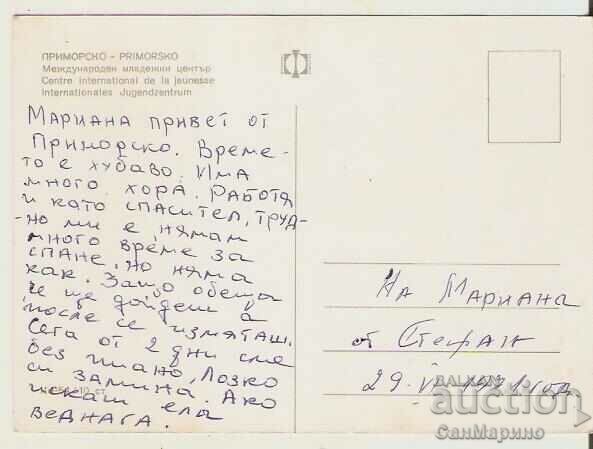 ПРИМОРСКО - PRIMORSKO
Международен младежки център
Centre international de la jeunesse
Internationales Jugendzentrum
МАРИАНА ПРИВЕТ ОТ
ПРИМОРСКО. ВРЕМЕ-
ТО Е ХУБАВО. ИМА
МНОГО ХОРА. РАБОТЯ
И КАТО СПАСИТЕЛ, ТРУД-
-НО МИ Е, НЯМАМ
МНОГО ВРЕМЕ ЗА
СПАНЕ, НО НЯМА
КАК. ЗАЩО ОБЕЩА
ЧЕ ЩЕ ДОЙДЕШ А
ПОСЛЕ СЕ ИЗМЯТАШ.
СЕГА ОТ 2 ДНИ СМЕ
БЕЗ ПИАНО, ЛОЗКО
СИ ЗАМИНА. АКО
ИСКАШ ЕЛА
ВЕДНАГА.
На Мариана
от Стефан
29. 1971 год
BALKAN
auction
СанМарино